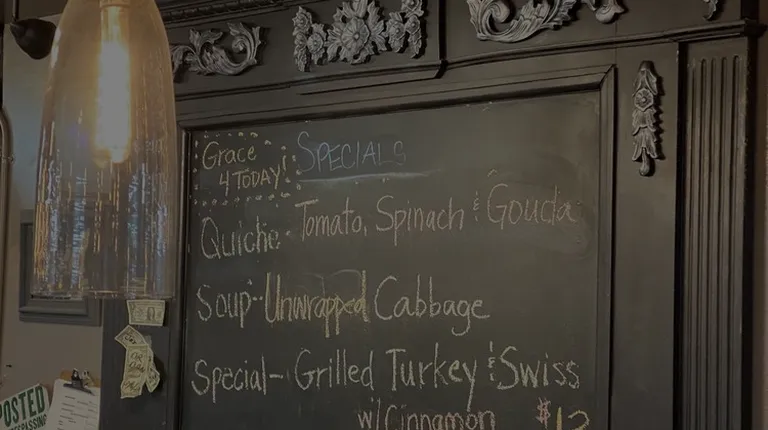 Grace
4 TODAY!
SPECIALS
Quiche - Tomato, Spinach & Gouda
Soup - Unwrapped Cabbage
Special - Grilled Turkey & Swiss
w/ Cinnamon $12
POSTED